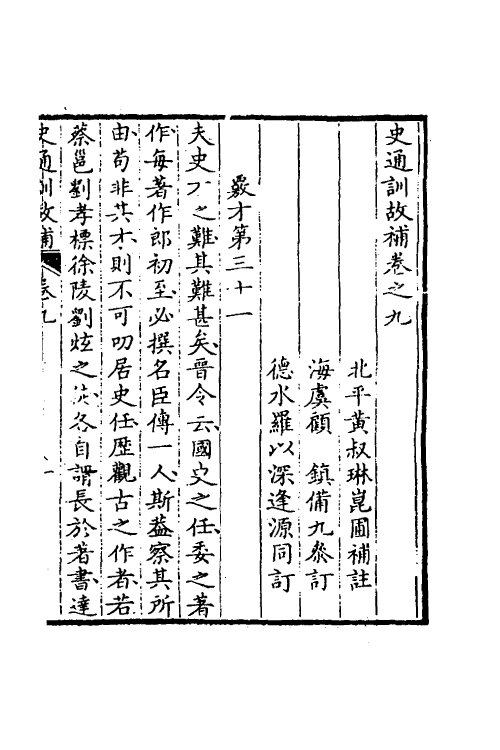 史通訓故補卷之九
北平黃叔琳崑圃補註
海虞顧　鎮備九參訂
德水羅以深逢源同訂
覈才第三十一
夫史才之難其難甚矣晉令云國史之任委之著
作每著作郎初至必撰名臣傳一人斯蓋察其所
由苟非其才則不可叨居史任歷觀古之作者若
蔡邕劉孝標徐陵劉炫之徒各自謂長於著書達
史通訓故補　卷九　一